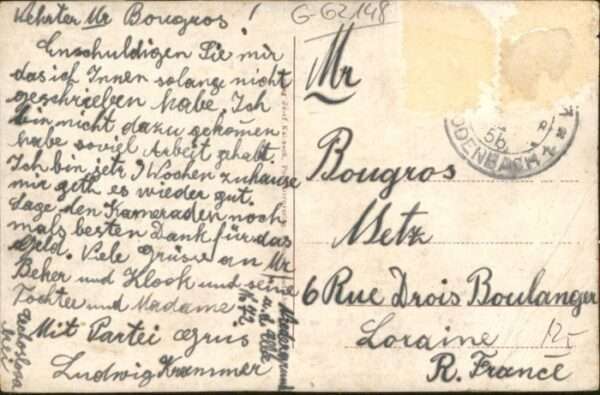 Vehrter Mr Bougros!
Enschuldigen Sie mir
das ich Innen solange nicht
geschrieben habe. Ich
bin nicht dazu gekom̄en
habe soviel Arbejt gehalt.
Ich bin jetz 3 Wochen zuhause
mir geth es wieder gut.
Sage den Kameraden noch
mals besten Dank für das
Geld. Viele Grüsse an Mr
Beher und Klook und seine
Tochter und Madame
Mit Partei Grus
Ludwig Krammer
G-62148
Mr
Bougros
Metz
6 Rue Drois Boulanger
Loraine
R. France
12-
56
ODENBACH